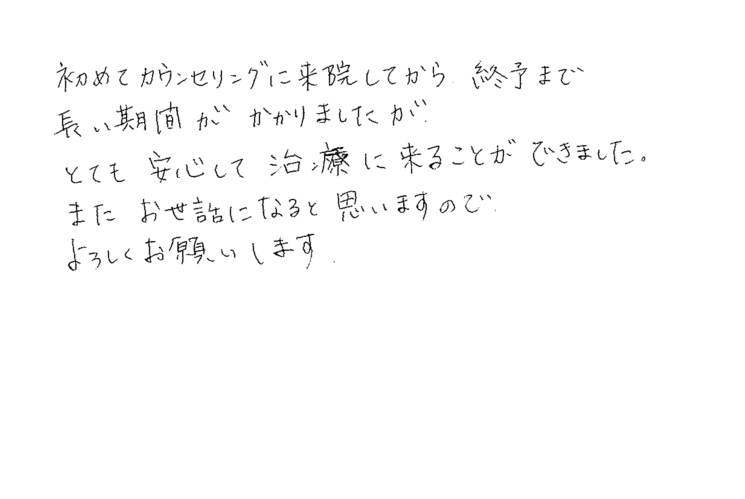 初めてカウンセリングに来院してから、終予まで
長い期間が かかりましたが、
とても 安心して 治療に来ることが できました。
また お世話になると思いますので、
よろしくお願いします.